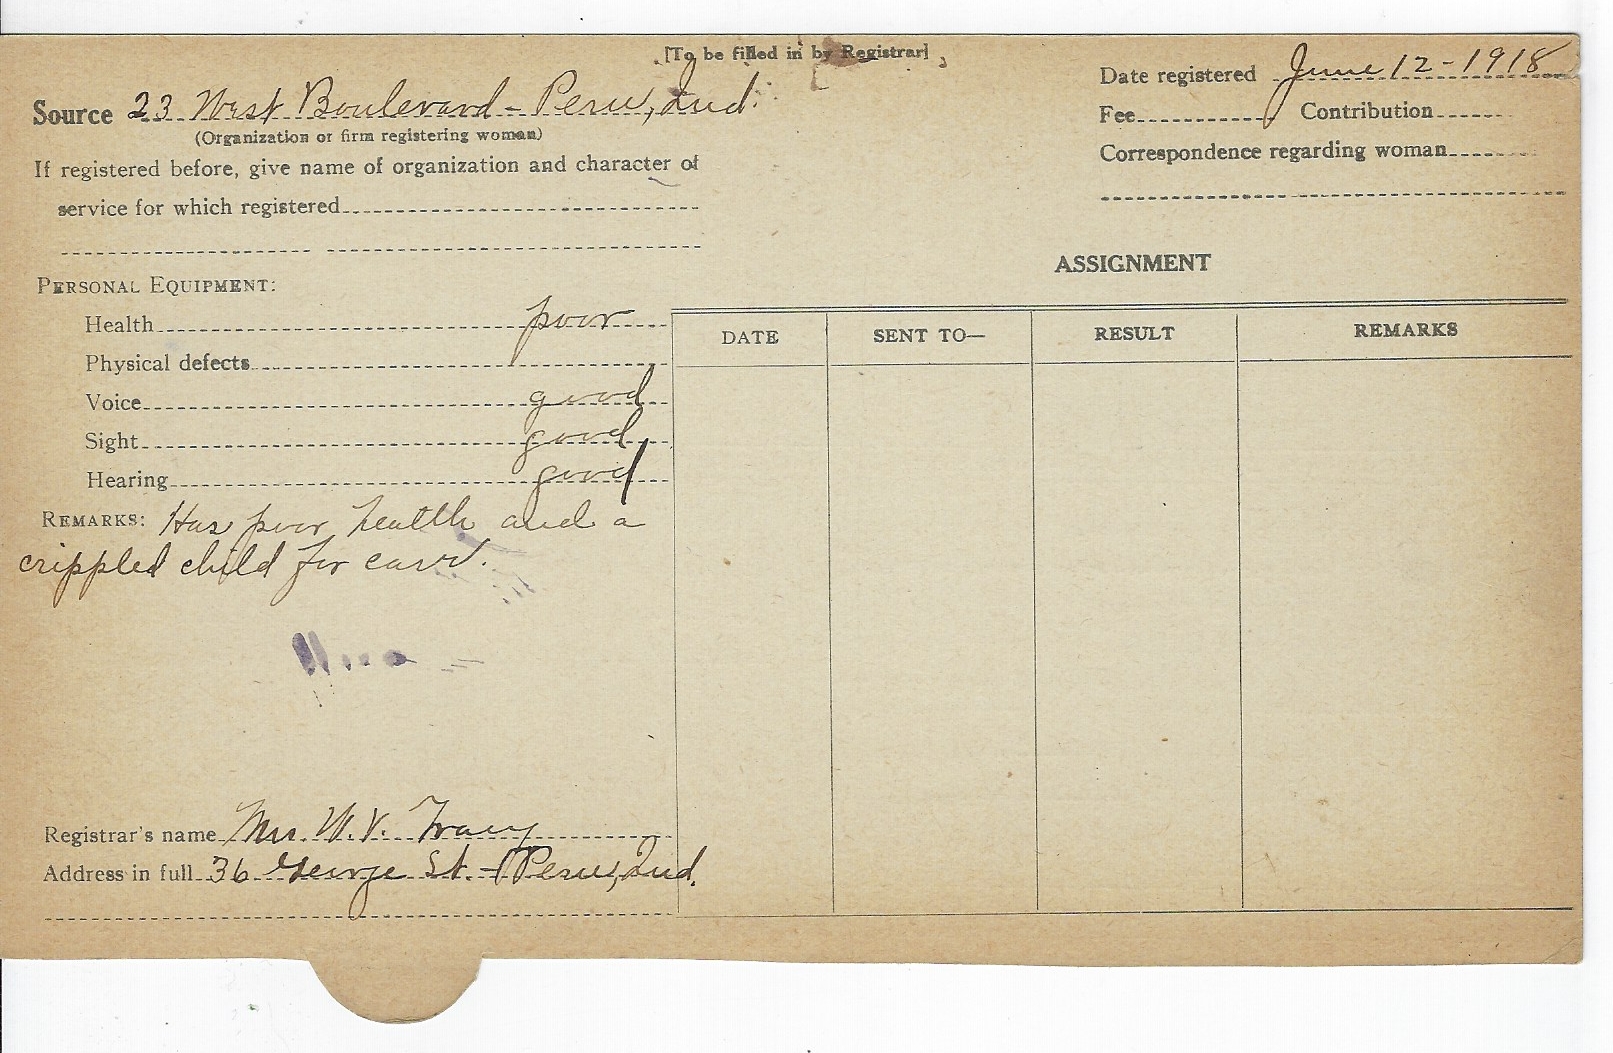 [To be filled in by Registrar]
Date registered June 12-1918
Source 23 West Boulevard - Peru, Ind.
(Organization or firm registering woman)
Fee Contribution
If registered before, give name of organization and character of
service for which registered
Correspondence regarding woman
ASSIGNMENT
PERSONAL EQUIPMENT:
Health poor
Physical defects
Voice good
Sight good
Hearing good
DATE SENT TO— RESULT REMARKS
REMARKS: Has poor health and a
crippled child for care.
Registrar's name Mrs W. V. Tracy
Address in full 36 George St. - Peru, Ind.